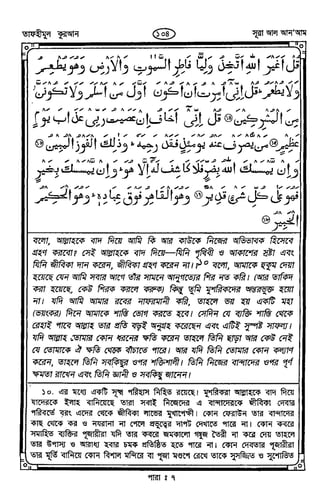 তাফহীমুল কুরআন
১০৪
সূরা আল আন'আম
قُلْ أَغَيْرَ اللَّهِ أَتَّخِذُ وَلِيًّا فَاطِرِ السَّمَوَتِ وَالْأَرْضِ وَهُوَ يُطْعِمُ
وَلَا يُطْعَمُ ۗ قُلْ إِنِّي أُمِرْتُ أَنْ أَكُونَ أَوَّلَ مَنْ أَسْلَمَ وَلَا تَكُونَنَّ
مِنَ الْمُشْرِكِينَ ⑭ قُلْ إِنِّي أَخَافُ إِنْ عَصَيْتُ رَبِّي عَذَابَ يَوْمٍ
عَظِيمٍ ⑮ مَنْ يُصْرَفْ عَنْهُ يَوْمَئِذٍ فَقَدْ رَحِمَهُ ۚ وَذَلِكَ الْفَوْزُ الْمُبِينُ ⑯
وَإِنْ يَمْسَسْكَ اللَّهُ بِضُرٍّ فَلَا كَاشِفَ لَهُ إِلَّا هُوَ ۖ وَإِنْ يَمْسَسْكَ بِخَيْرٍ
فَهُوَ عَلَى كُلِّ شَيْءٍ قَدِيرٌ ⑰ وَهُوَ الْقَاهِرُ فَوْقَ عِبَادِهِ ۚ وَهُوَ الْحَكِيمُ
الْخَبِيرُ ⑱
বলো, আল্লাহকে বাদ দিয়ে আমি কি আর কাউকে নিজের অভিভাবক হিসেবে
গ্রহণ করবো? সেই আল্লাহকে বাদ দিয়ে—যিনি পৃথিবী ও আকাশের স্রষ্টা এবং
যিনি জীবিকা দান করেন, জীবিকা গ্রহণ করেন না।১০ বলো, আমাকে হুকুম দেয়া
হয়েছে যেন আমি সবার আগে তাঁর সামনে আনুগত্যের শির নত করি। (আর তাকিদ
করা হয়েছে, কেউ শিরক করলে করুক) কিন্তু তুমি মুশরিকদের অন্তরভুক্ত হয়ো
না। যদি আমি আমার রবের নাফরমানী করি, তাহলে ভয় হয় একটি মহা
(ভয়ংকর) দিনে আমাকে শাস্তি ভোগ করতে হবে। সেদিন যে ব্যক্তি শাস্তি থেকে
রেহাই পাবে আল্লাহ তার প্রতি বড়ই অনুগ্রহ করেছেন এবং এটিই সুস্পষ্ট সাফল্য।
যদি আল্লাহ তোমার কোন ধরনের ক্ষতি করেন তাহলে তিনি ছাড়া আর কেউ নেই
যে তোমাকে ঐ ক্ষতি থেকে বাঁচাতে পারে। আর যদি তিনি তোমার কোন কল্যাণ
করেন, তাহলে তিনি সবকিছুর ওপর শক্তিশালী। তিনি নিজের বান্দাদের ওপর পূর্ণ
ক্ষমতা রাখেন এবং তিনি জ্ঞানী ও সবকিছু জানেন।
১০. এর মধ্যে একটি সূক্ষ্ম পরিহাস নিহিত রয়েছে। মুশরিকরা আল্লাহকে বাদ দিয়ে
যাদেরকে ইলাহ বানিয়েছে তারা সবাই নিজেদের এ বান্দাদেরকে জীবিকা দেবার
পরিবর্তে বরং এদের থেকে জীবিকা লাভের মুখাপেক্ষী। কোন ফেরাউন তার বান্দাদের
কাছ থেকে কর ও নযরানা না পেলে প্রভুত্বের দাপট দেখাতে পারে না। কোন কবরে
সমাহিত ব্যক্তির পূজারীরা যদি তার কবরে জমকালো গম্বুজ তৈরী না করে দেয় তাহলে
তার উপাস্য ও আরাধ্য হবার চমক প্রতিষ্ঠিত হতে পারে না। কোন দেবতার পূজারীরা
তার মূর্তি বানিয়ে কোন বিশাল মন্দিরে বা পূজা মণ্ডপে রেখে তাকে সুসজ্জিত ও সুশোভিত
পারা ঃ ৭